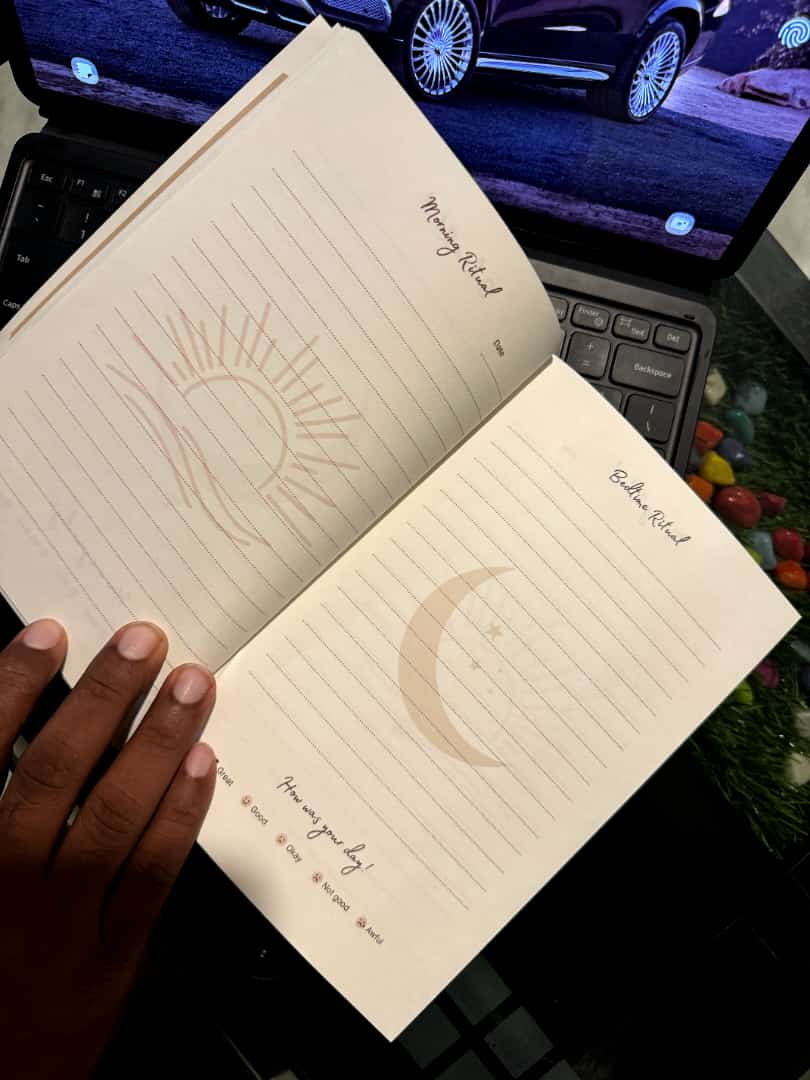 Morning Ritual
Date
Bedtime Ritual
How was your day!
Great
Good
Okay
Not good
Awful
Esc
F1
F2
Tab
Caps
Finder
Del
Backspace